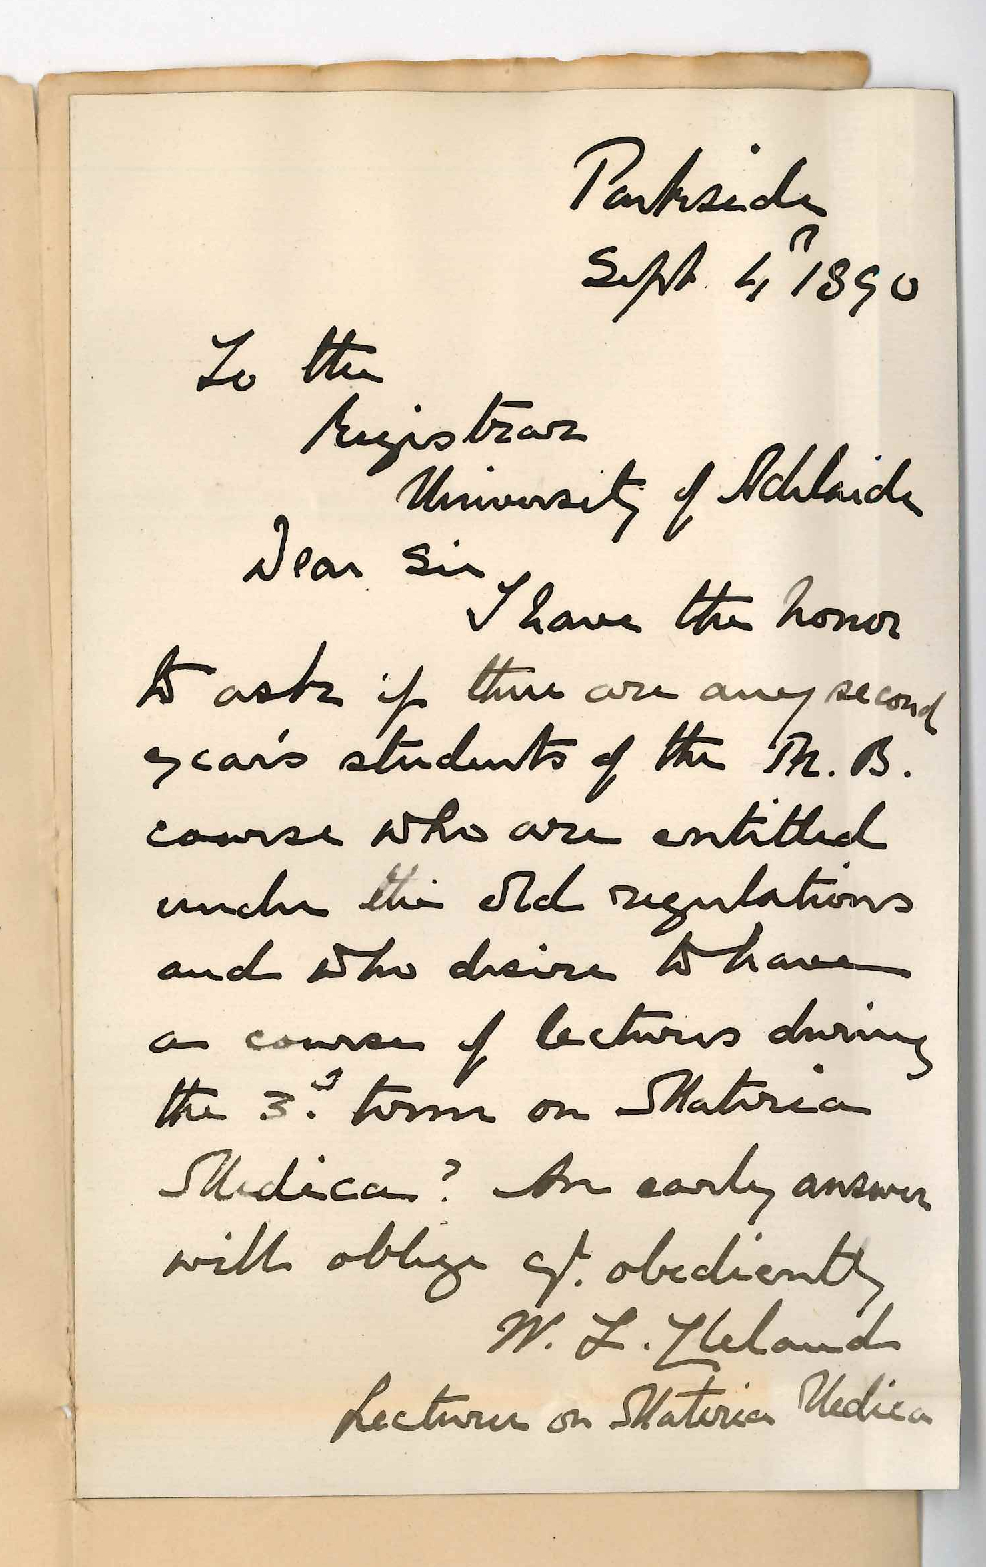 Parkside
Sept. 4th 1890
To the
Registrar
University of Adelaide
Dear Sir
I have the honor
to ask if there are any second
year's students of the M. B.
course who are entitled
under the old regulations
and who desire to have
a course of lectures during
the 3rd. term on Materia
Medica? An early answer
will oblige yr. obediently
W. L. Cleland
Lecturer on Materia Medica